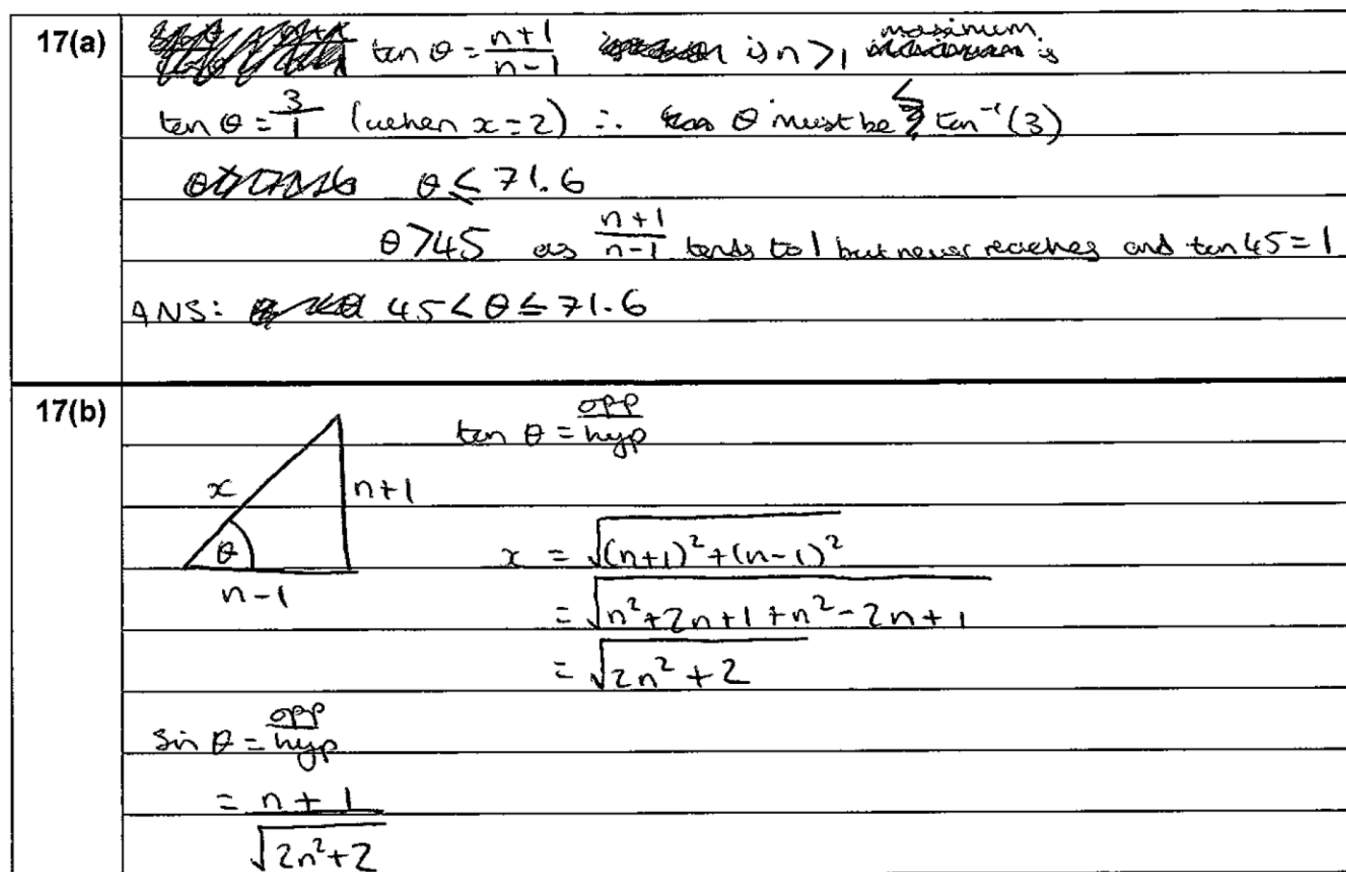 17(a)
tan θ = n+1/n-1 is n>1 maximum is
tan θ = 3/1 (when x=2) ∴ θ must be ≤ tan⁻¹(3)
θ ≤ 71.6
θ>45 as n+1/n-1 tends to 1 but never reaches and tan 45=1
ANS: 45<θ≤71.6
17(b)
tan θ = opp/hyp
x
n+1
θ
n-1
x = √(n+1)²+(n-1)²
= √n²+2n+1+n²-2n+1
= √2n²+2
sin θ = opp/hyp
= n+1/√2n²+2